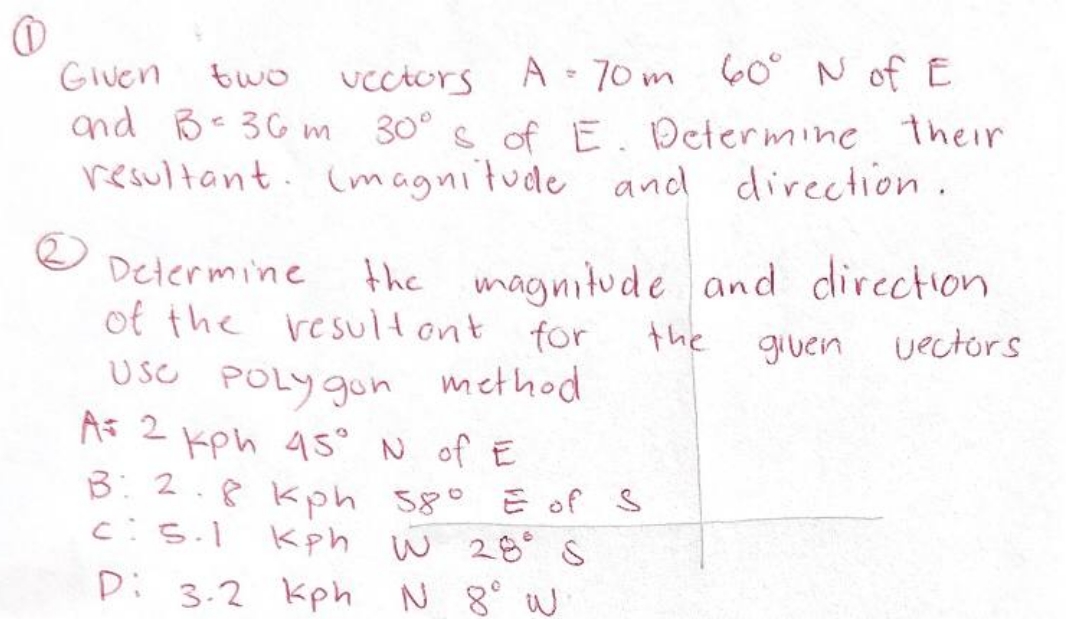 ①
Given two vectors A = 70 m 60° N of E
and B = 36 m 30° S of E. Determine their
resultant. (magnitude and direction.
②
Determine the magnitude and direction
of the resultant for the given vectors
Use POLYgon method
A: 2 kph 45° N of E
B: 2.8 kph 58° E of S
C: 5.1 kph W 28° S
D: 3.2 kph N 8° W